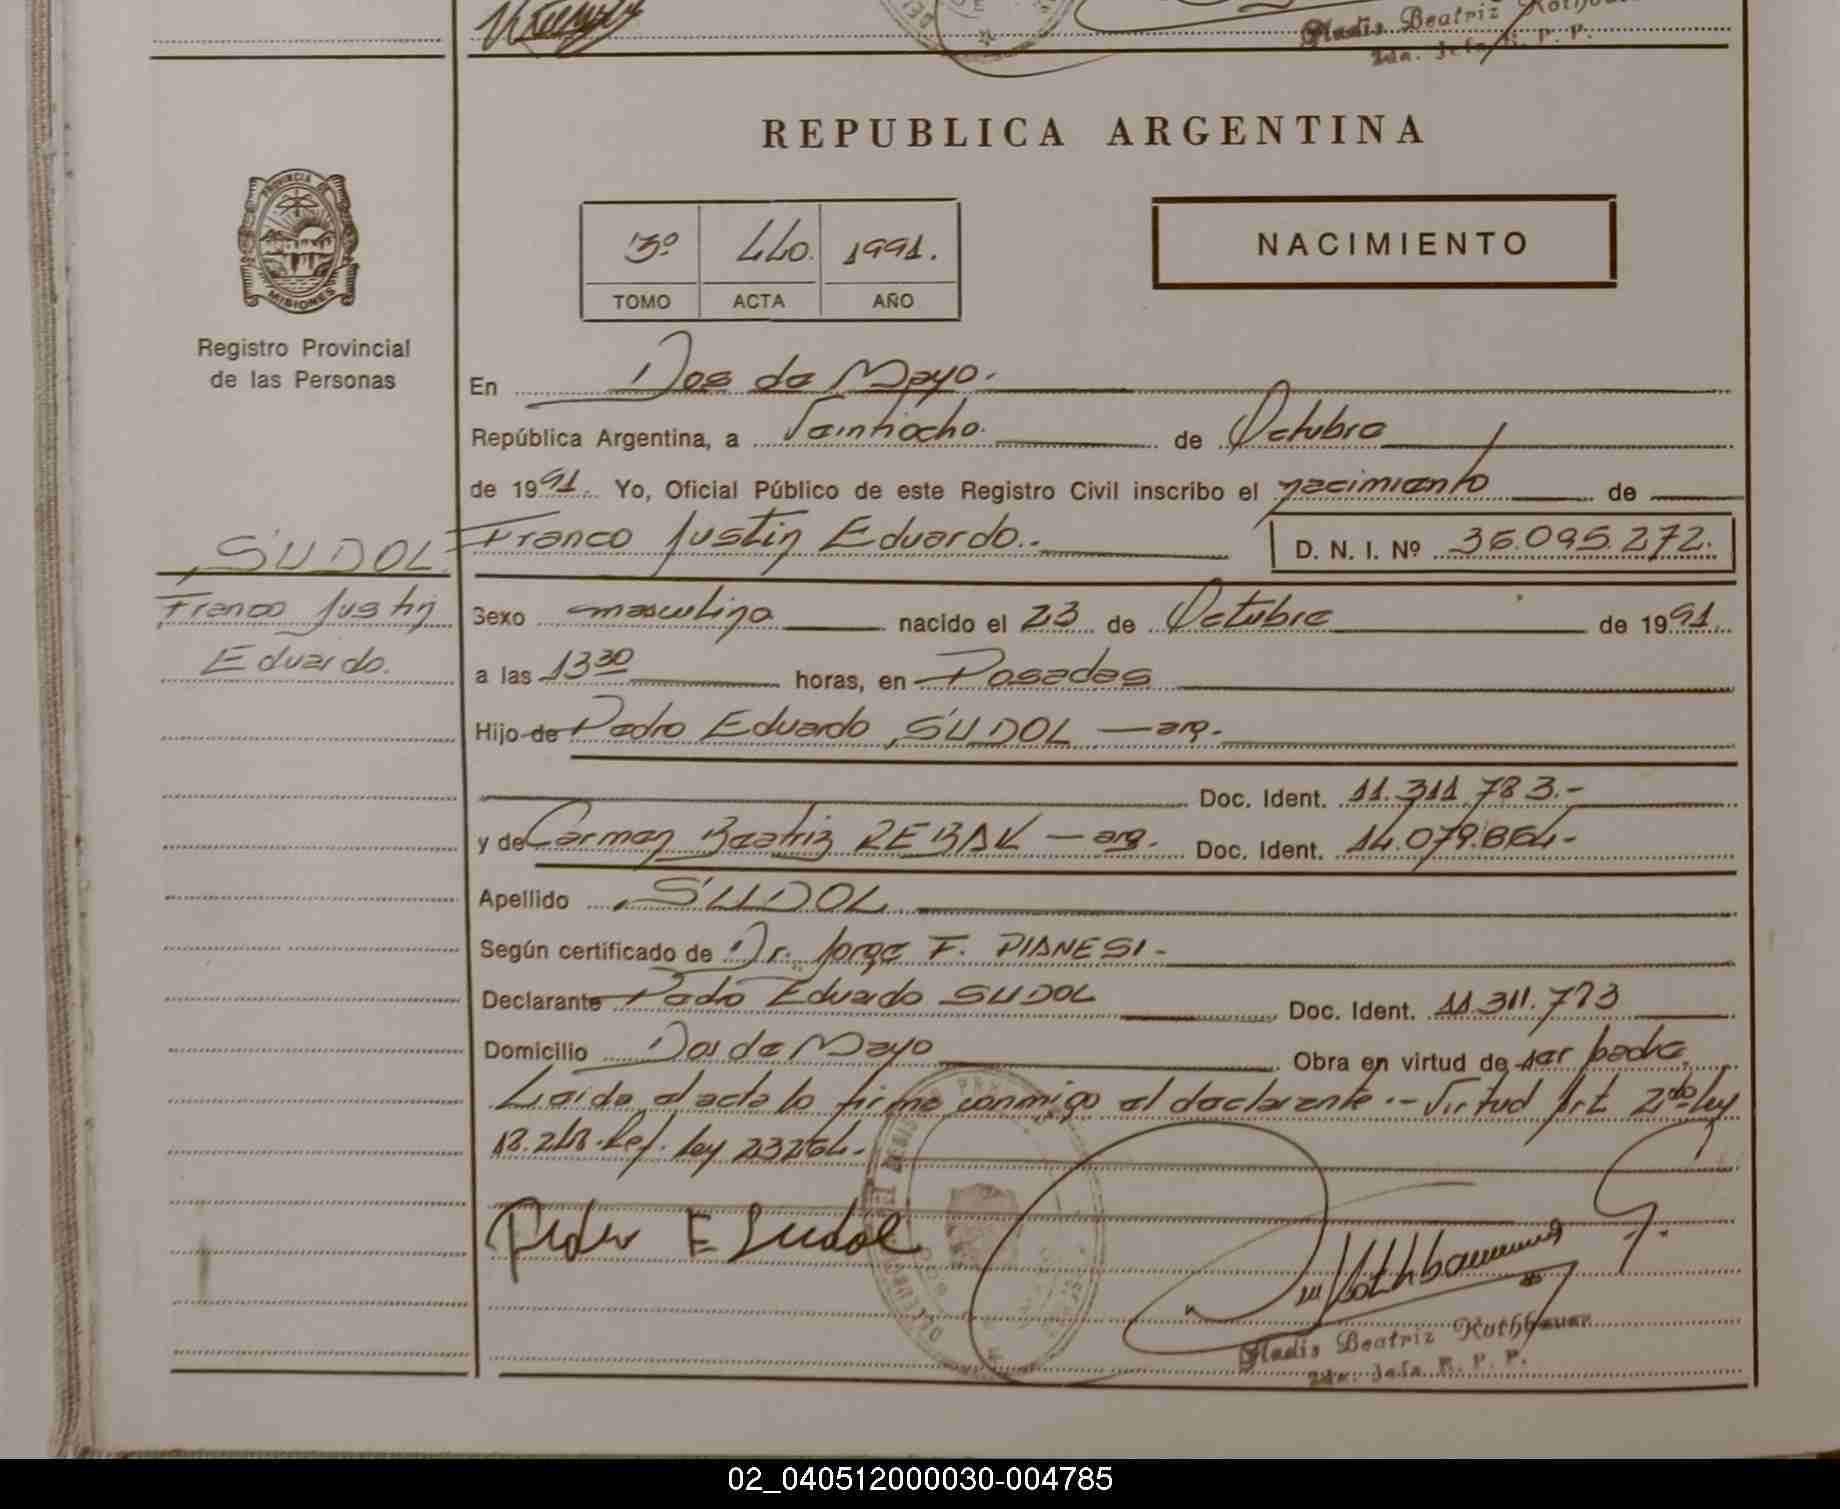 Gladis Beatriz
2da. Jefa R. P. P.
REPUBLICA ARGENTINA
PROVINCIA DE
MISIONES
3º 440. 1991.
TOMO ACTA AÑO
NACIMIENTO
Registro Provincial
de las Personas
En Dos de Mayo.
República Argentina, a Veintiocho. de Octubre
de 1991. Yo, Oficial Público de este Registro Civil inscribo el nacimiento de
SUDOL Franco Justin Eduardo.. D. N. I. Nº 36.095.272.
Franco Justin
Eduardo.
Sexo masculino nacido el 23 de Octubre de 1991
a las 13 30 horas, en Posadas
Hijo de Pedro Eduardo SUDOL — arg.
Doc. Ident. 11.311.783.-
y de Carmen Beatriz REBAK — arg. Doc. Ident. 14.079.864-
Apellido SUDOL
Según certificado de Dr. Jorge F. PIANESI-
Declarante Pedro Eduardo SUDOL Doc. Ident. 11.311.773
Domicilio Dos de Mayo Obra en virtud de ser padre
Leída el acta lo firma conmigo el declarante.- Virtud Art. 2do Ley
18.248. Ref. Ley 23264.-
Pedro E Sudol
Gladis Beatriz Rothbauer
2da. Jefa R. P. P.
02_040512000030-004785